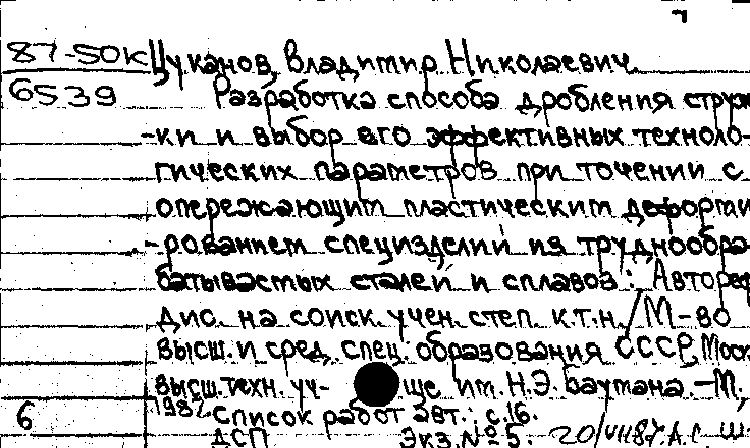 87-50к Цуканов, Владимир Николаевич.
6539 Разработка способа дробления струж-
-ки и выбор его эффективных техноло-
гических параметров при точении с
опережающим пластическим деформи
-рованием специзделий из труднообра-
батываемых сталей и сплавов: Автореф
дис. на соиск. учен. степ. к.т.н./М-во
высш. и сред. спец. образования СССР, Моск
высш. техн. уч-ще им. Н.Э. Баумана.-М.,
6 1987. Список работ авт.: с.16.
ДСП Экз.№5. 20/VII87